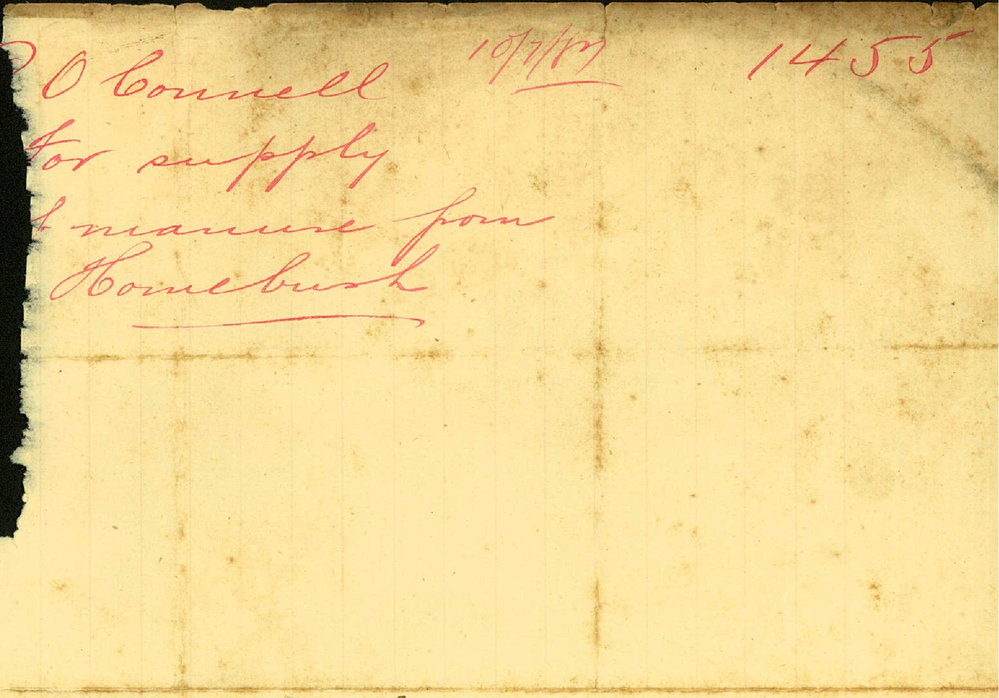 O'Connell 10/7/17 1455
for supply
manure from
Homebush